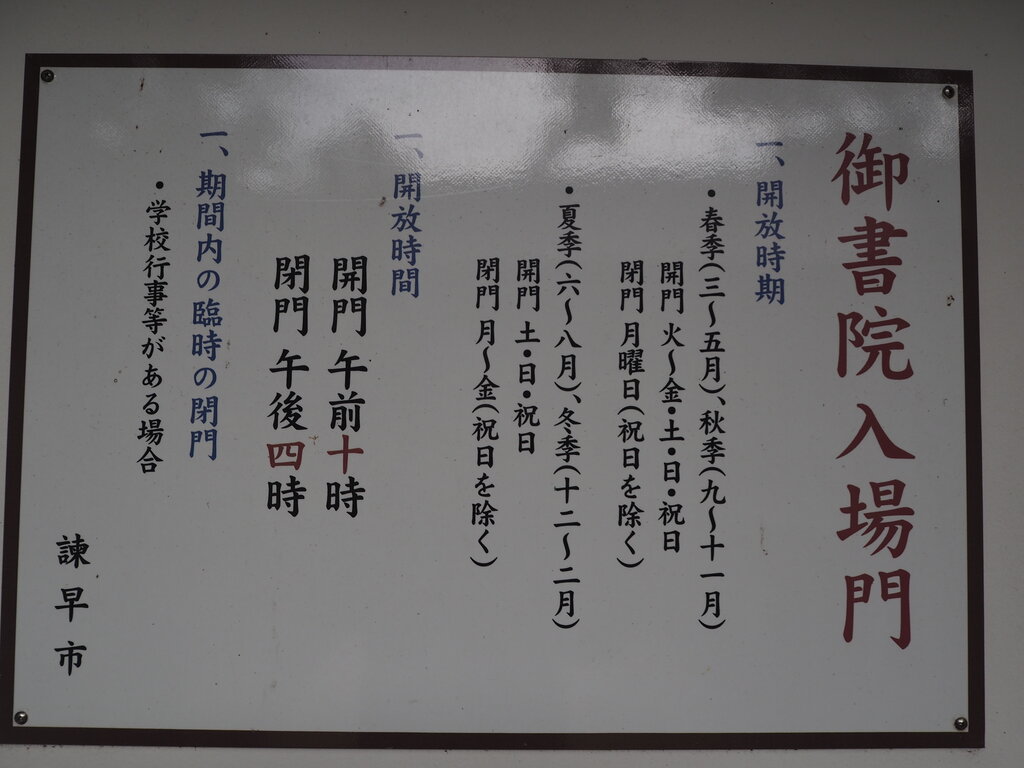 御書院入場門
一、開放時期
・春季(三～五月)、秋季(九～十一月)
開門 火～金・土・日・祝日
閉門 月曜日(祝日を除く)
・夏季(六～八月)、冬季(十二～二月)
開門 土・日・祝日
閉門 月～金(祝日を除く)
一、開放時間
開門 午前十時
閉門 午後四時
一、期間内の臨時の閉門
・学校行事等がある場合
諫早市